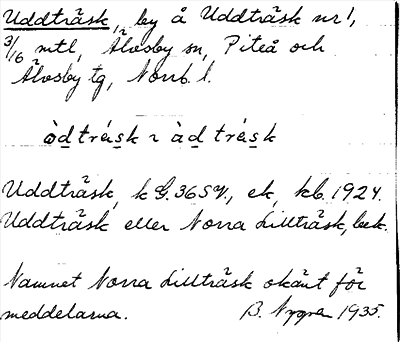 Uddträsk, by å Uddträsk nr 1,
3/16 mtl, Älvsby sn, Piteå och
Älvsby tg, Norrb. l.
òdträsk ~ àdträsk
Uddträsk, k 36 SV., ek, kb. 1924.
Uddträsk eller Norra Lillträsk, bek.
Namnet Norra Lillträsk okänt för
meddelarna. B. Nygren 1935.